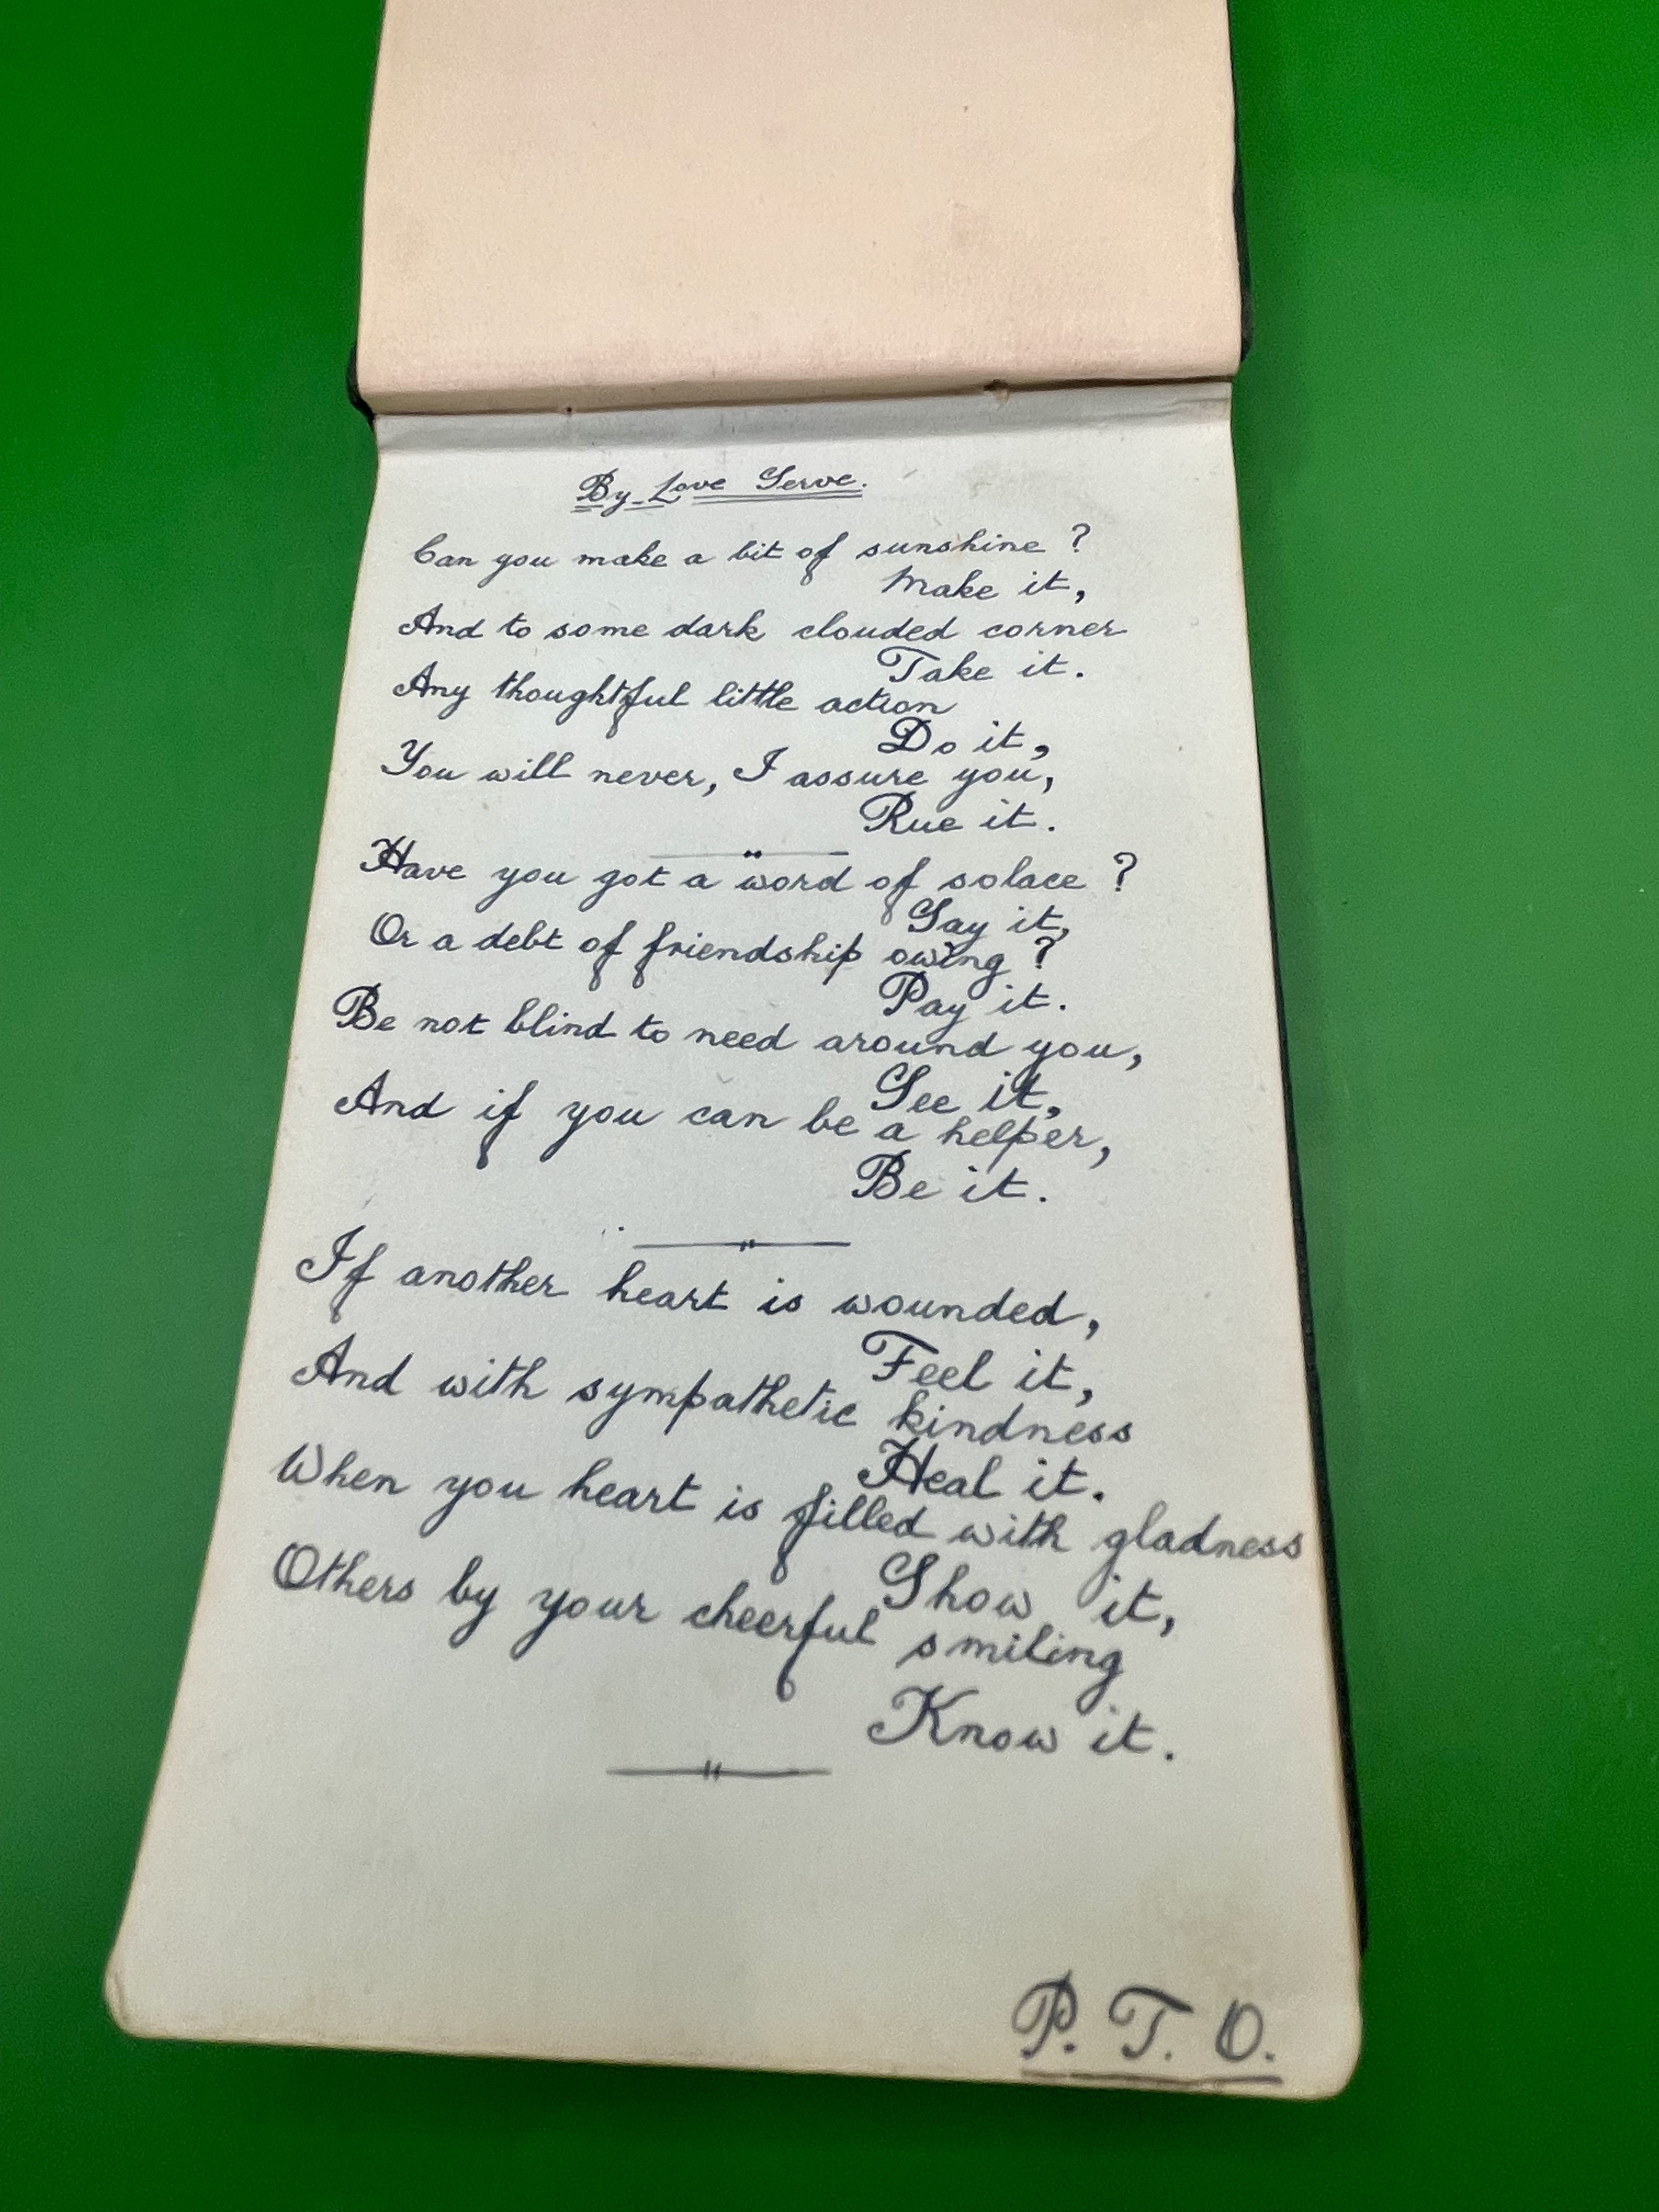 By Love Serve.
Can you make a bit of sunshine ?
Make it,
And to some dark clouded corner
Take it.
Any thoughtful little action
Do it,
You will never, I assure you,
Rue it.
Have you got a word of solace ?
Say it,
Or a debt of friendship owing ?
Pay it.
Be not blind to need around you,
See it,
And if you can be a helper,
Be it.
If another heart is wounded,
Feel it,
And with sympathetic kindness
Heal it.
When you heart is filled with gladness
Show it,
Others by your cheerful smiling
Know it.
P. T. O.